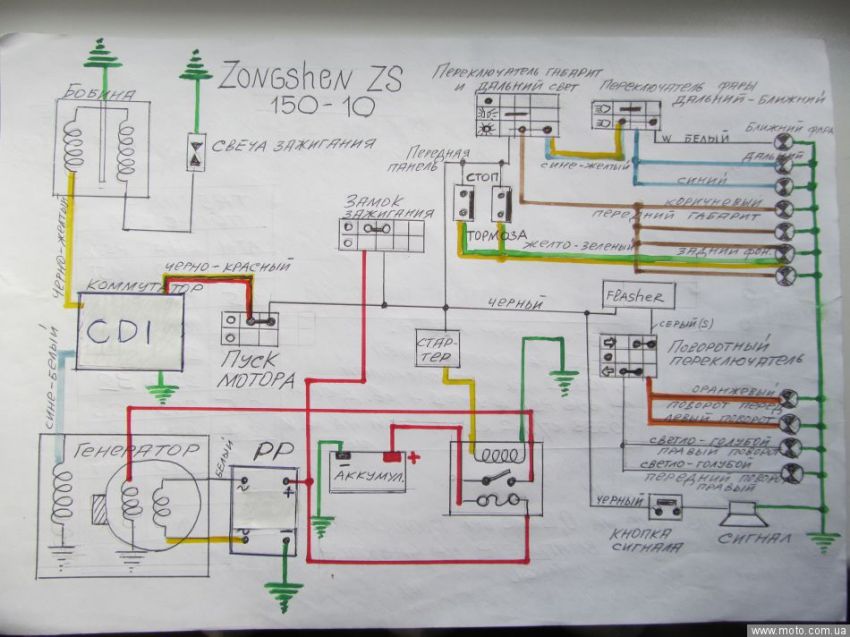 Zongshen ZS
150-10
БОБИНА
СВЕЧА ЗАЖИГАНИЯ
ПЕРЕКЛЮЧАТЕЛЬ ГАБАРИТ
И ДАЛЬНИЙ СВЕТ
ПЕРЕКЛЮЧАТЕЛЬ ФАРЫ
ДАЛЬНИЙ-БЛИЖНИЙ
W БЕЛЫЙ
БЛИЖНИЙ ФАРА
ДАЛЬНИЙ
СИНЕ-ЖЕЛТЫЙ
СИНИЙ
ПЕРЕДНЯЯ
ПАНЕЛЬ
СТОП
ТОРМОЗА
КОРИЧНЕВЫЙ
ПЕРЕДНИЙ ГАБАРИТ
ЖЕЛТО-ЗЕЛЕНЫЙ
ЗАДНИЙ ФОН.
ЗАМОК
ЗАЖИГАНИЯ
ЧЕРНО-ЖЕЛТЫЙ
ЧЕРНО-КРАСНЫЙ
КОММУТАТОР
CDI
ПУСК
МОТОРА
ЧЕРНЫЙ
Flasher
СЕРЫЙ(S)
СТАР-
ТЕР
ПОВОРОТНЫЙ
ПЕРЕКЛЮЧАТЕЛЬ
СИНЕ-БЕЛЫЙ
ОРАНЖЕВЫЙ
ПОВОРОТ ПЕРЕД
ЛЕВЫЙ ПОВОРОТ
СВЕТЛО-ГОЛУБОЙ
ПРАВЫЙ ПОВОРОТ
СВЕТЛО-ГОЛУБОЙ
ПЕРЕДНИЙ ПОВОРОТ
ПРАВЫЙ
ГЕНЕРАТОР
БЕЛЫЙ
РР
~ +
~ -
- +
АККУМУЛ.
ЧЕРНЫЙ
КНОПКА
СИГНАЛА
СИГНАЛ
www.moto.com.ua